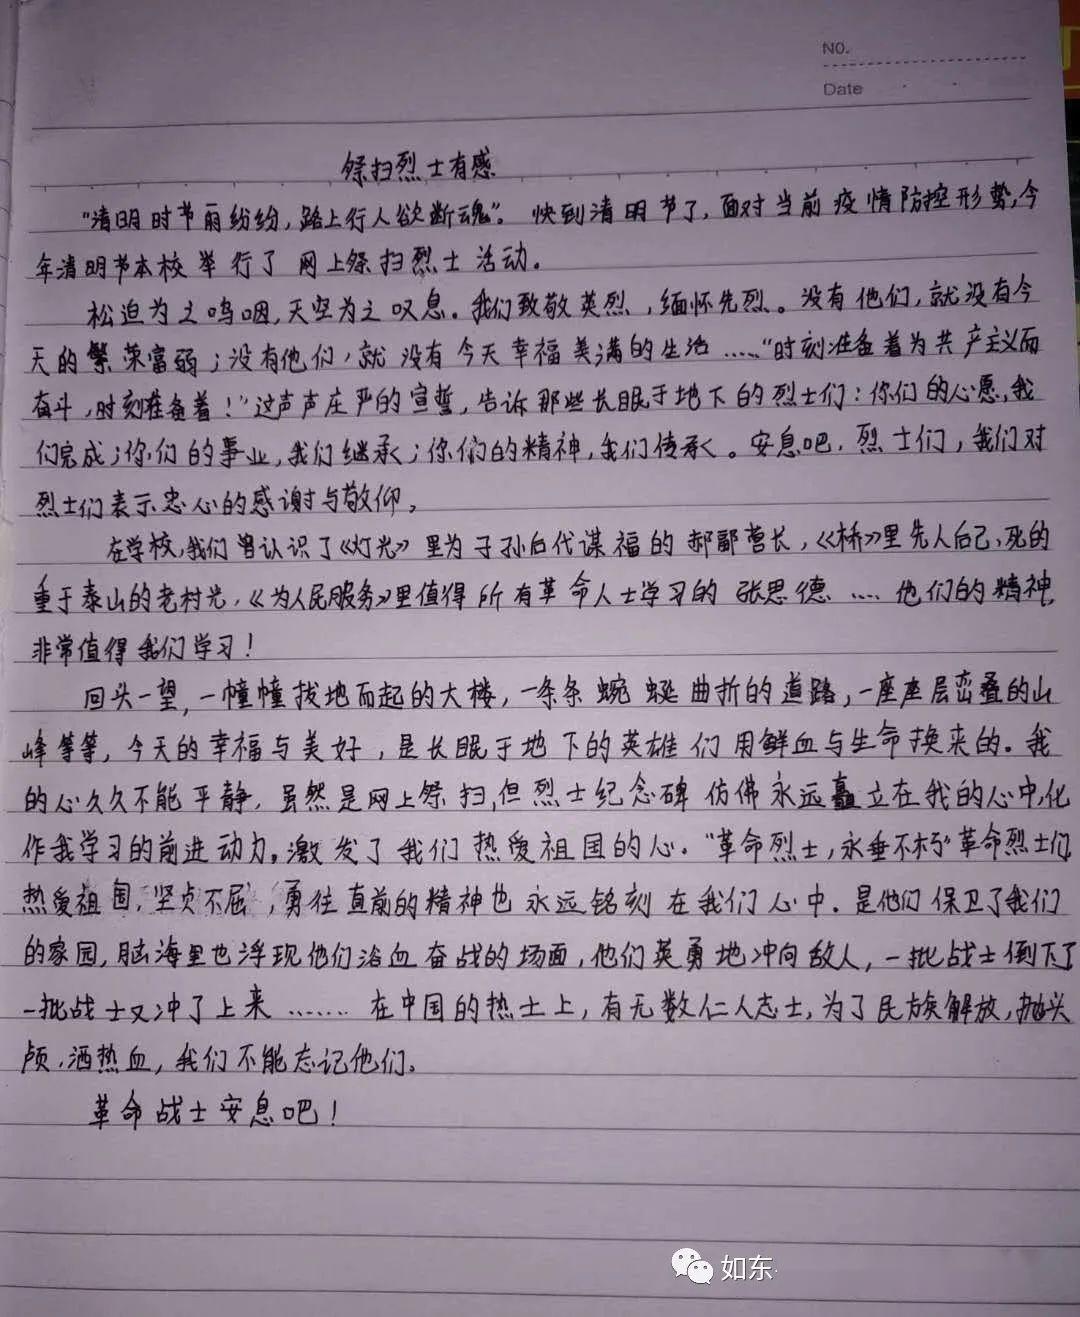 NO.
Date
祭扫烈士有感
"清明时节雨纷纷,路上行人欲断魂"。快到清明节了,面对当前疫情防控形势,今
年清明节本校举行了网上祭扫烈士活动。
松迫为之呜咽,天空为之叹息。我们致敬英烈,缅怀先烈。没有他们,就没有今
天的繁荣富弱;没有他们,就没有今天幸福美满的生活……"时刻准备着为共产主义而
奋斗,时刻准备着!"这声声庄严的宣誓,告诉那些长眠于地下的烈士们:你们的心愿,我
们完成;你们的事业,我们继承;你们的精神,我们传承。安息吧,烈士们,我们对
烈士们表示忠心的感谢与敬仰。
在学校,我们曾认识了《灯光》里为子孙后代谋福的郝副营长,《桥》里先人后己、死的
重于泰山的老村光,《为人民服务》里值得所有革命人士学习的张思德……他们的精神
非常值得我们学习!
回头一望,一幢幢拔地而起的大楼,一条条蜿蜒曲折的道路,一座座层峦叠的山
峰等等,今天的幸福与美好,是长眠于地下的英雄们用鲜血与生命换来的。我
的心久久不能平静,虽然是网上祭扫,但烈士纪念碑仿佛永远矗立在我的心中,化
作我学习的前进动力。激发了我们热爱祖国的心。"革命烈士,永垂不朽"革命烈士们
热爱祖国,坚贞不屈,勇往直前的精神也永远铭刻在我们心中.是他们保卫了我们
的家园,脑海里也浮现他们浴血奋战的场面,他们英勇地冲向敌人,一批战士倒下了
一批战士又冲了上来……在中国的热土上,有无数仁人志士,为了民族解放,抛头
颅,洒热血,我们不能忘记他们。
革命战士安息吧!
如东